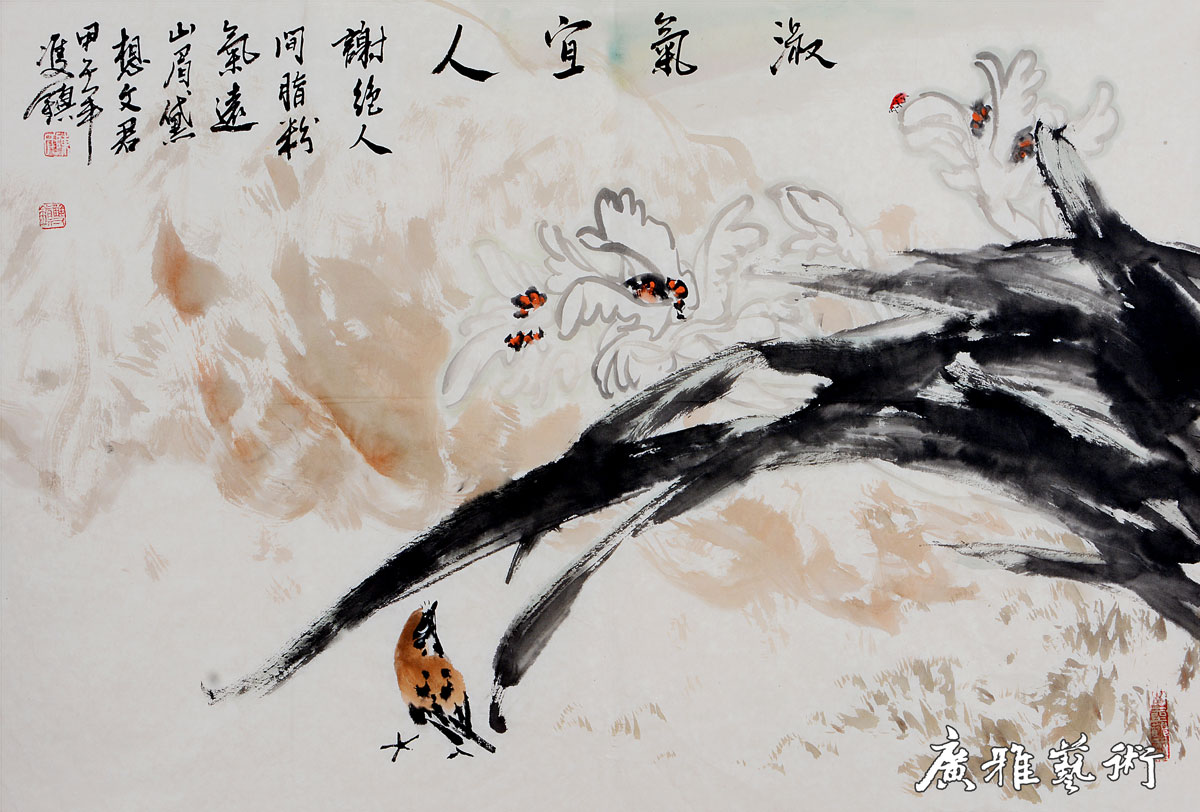 淑氣宜人
謝絕人
间脂粉
氣遠
山眉黛
想文君
甲子年
鎮
廣雅藝術